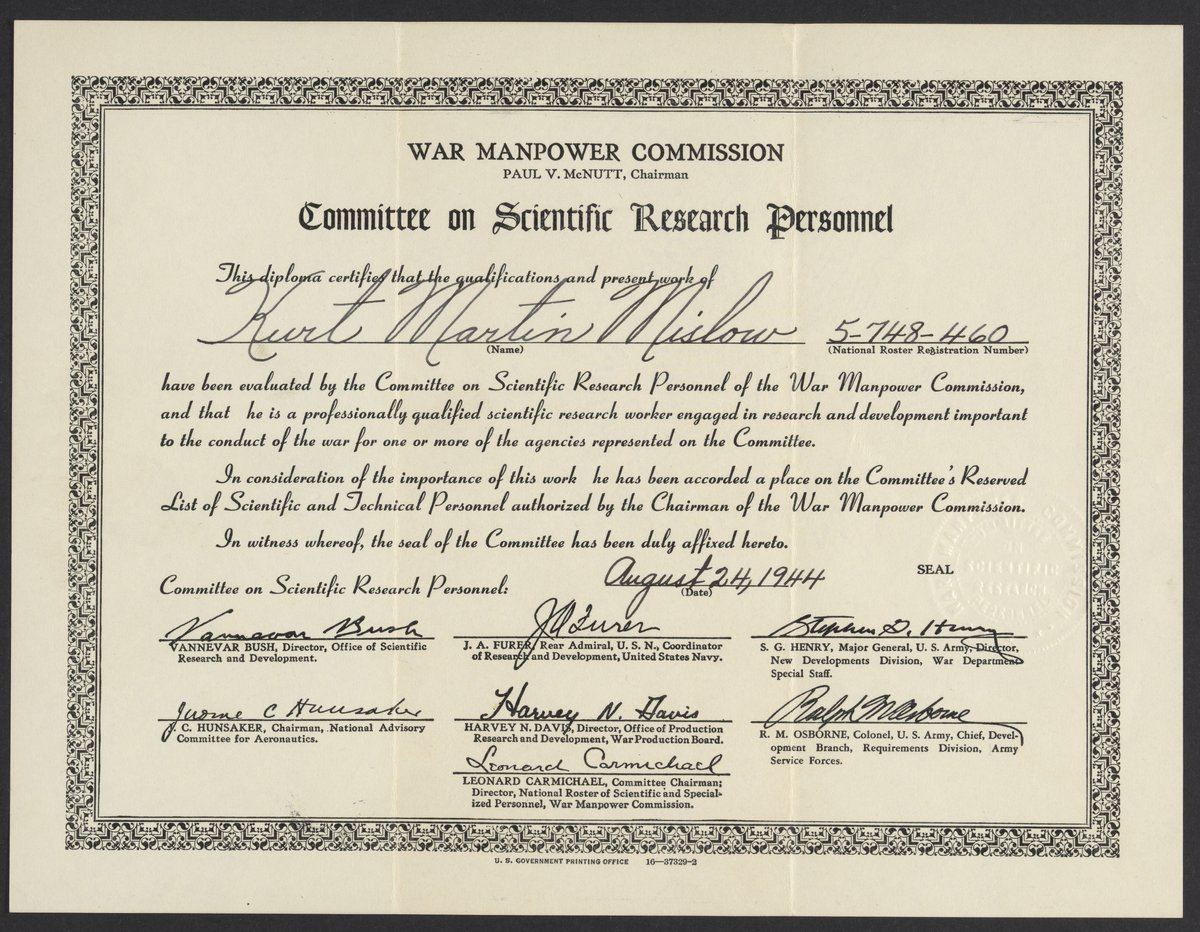 WAR MANPOWER COMMISSION
PAUL V. McNUTT, Chairman
Committee on Scientific Research Personnel
This diploma certifies that the qualifications and present work of
Kurt Martin Mislow 5-748-460
(Name) (National Roster Registration Number)
have been evaluated by the Committee on Scientific Research Personnel of the War Manpower Commission,
and that he is a professionally qualified scientific research worker engaged in research and development important
to the conduct of the war for one or more of the agencies represented on the Committee.
In consideration of the importance of this work he has been accorded a place on the Committee's Reserved
List of Scientific and Technical Personnel authorized by the Chairman of the War Manpower Commission.
In witness whereof, the seal of the Committee has been duly affixed hereto.
August 24, 1944
(Date)
SEAL
Committee on Scientific Research Personnel:
Vannevar Bush
VANNEVAR BUSH, Director, Office of Scientific
Research and Development.
J A Furer
J. A. FURER, Rear Admiral, U. S. N., Coordinator
of Research and Development, United States Navy.
Stephen G. Henry
S. G. HENRY, Major General, U. S. Army, Director,
New Developments Division, War Department
Special Staff.
Jerome C Hunsaker
J. C. HUNSAKER, Chairman, National Advisory
Committee for Aeronautics.
Harvey N. Davis
HARVEY N. DAVIS, Director, Office of Production
Research and Development, War Production Board.
Ralph M Osborne
R. M. OSBORNE, Colonel, U. S. Army, Chief, Devel-
opment Branch, Requirements Division, Army
Service Forces.
Leonard Carmichael
LEONARD CARMICHAEL, Committee Chairman;
Director, National Roster of Scientific and Special-
ized Personnel, War Manpower Commission.
U. S. GOVERNMENT PRINTING OFFICE 16—37329-2